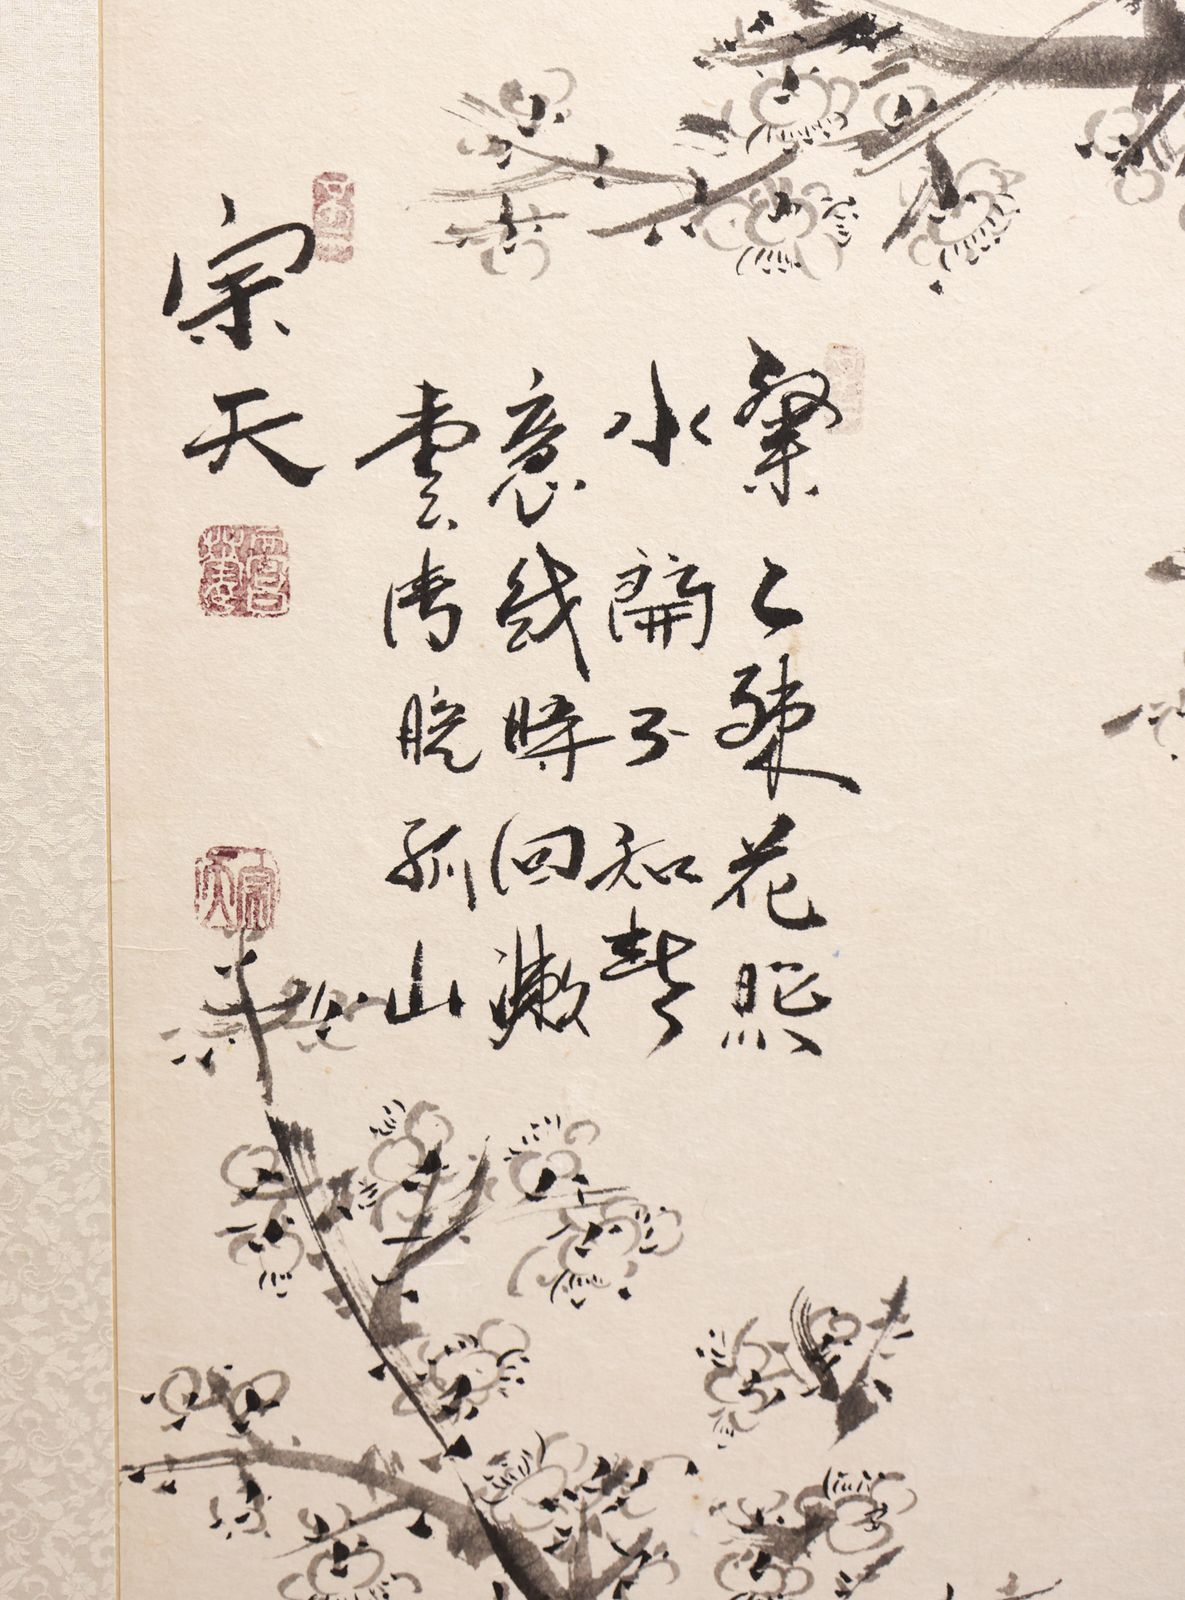 粲々疎花照
水開不知春
意幾時回嫩
雲清曉孤山
宗天
宗天